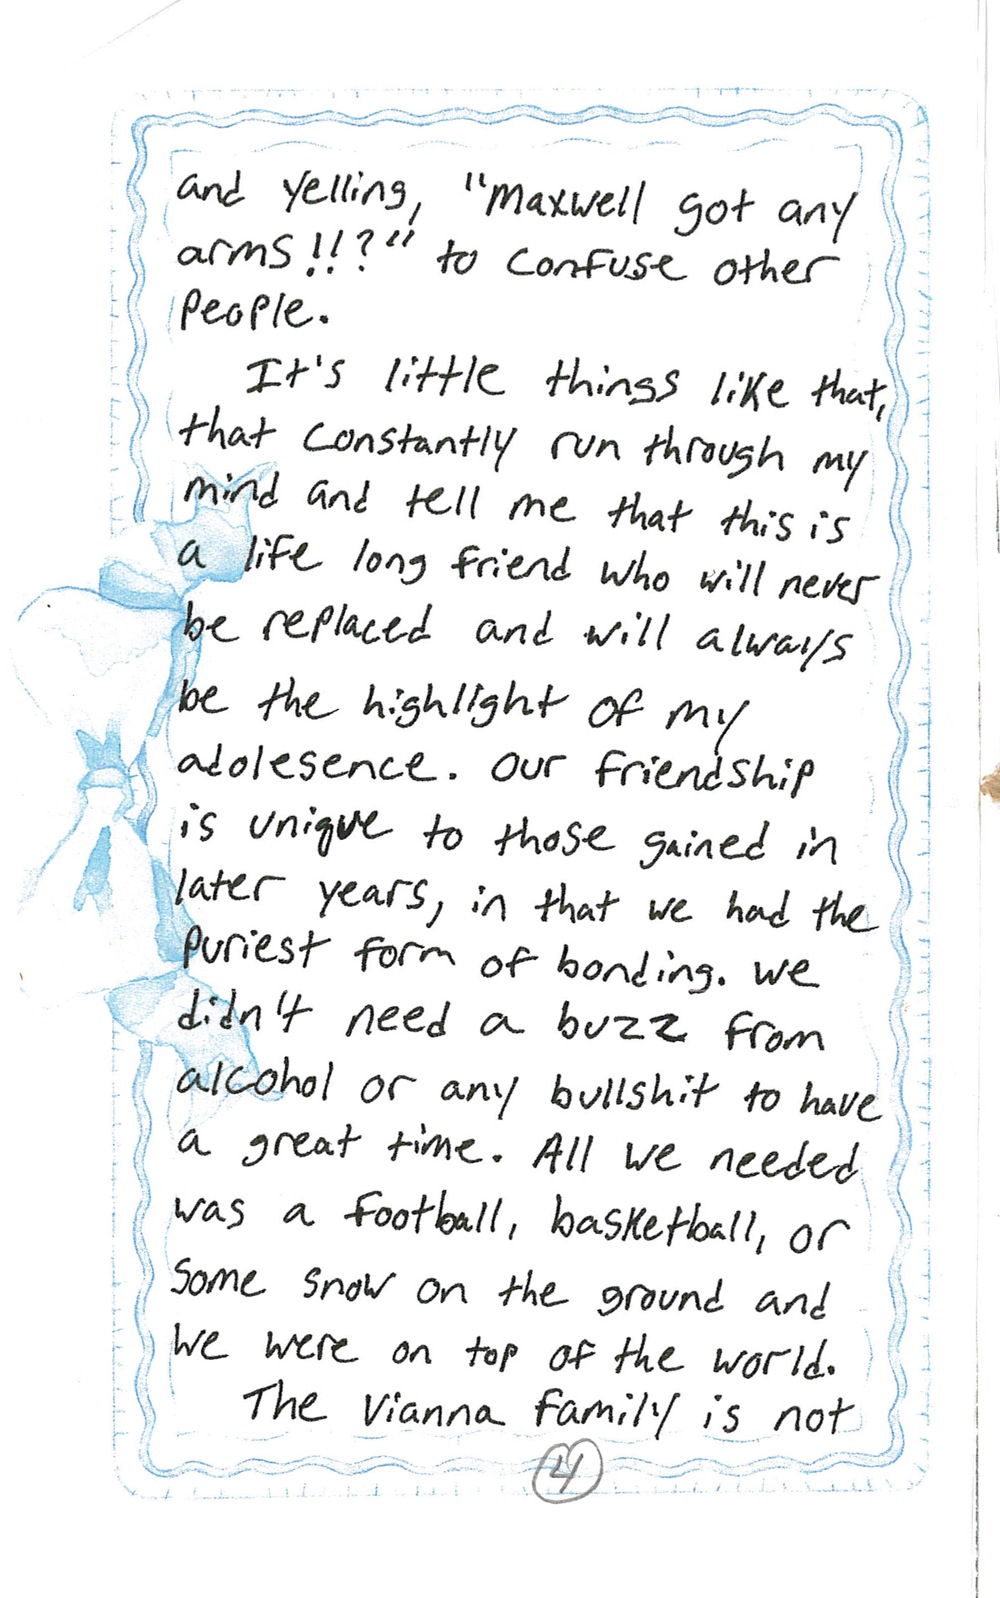 and yelling, "Maxwell got any
arms!!?" to confuse other
people.
It's little things like that,
that constantly run through my
mind and tell me that this is
a life long friend who will never
be replaced and will always
be the highlight of my
adolesence. Our friendship
is unique to those gained in
later years, in that we had the
puriest form of bonding. We
didn't need a buzz from
alcohol or any bullshit to have
a great time. All we needed
was a football, basketball, or
some snow on the ground and
we were on top of the world.
The Vianna family is not
4